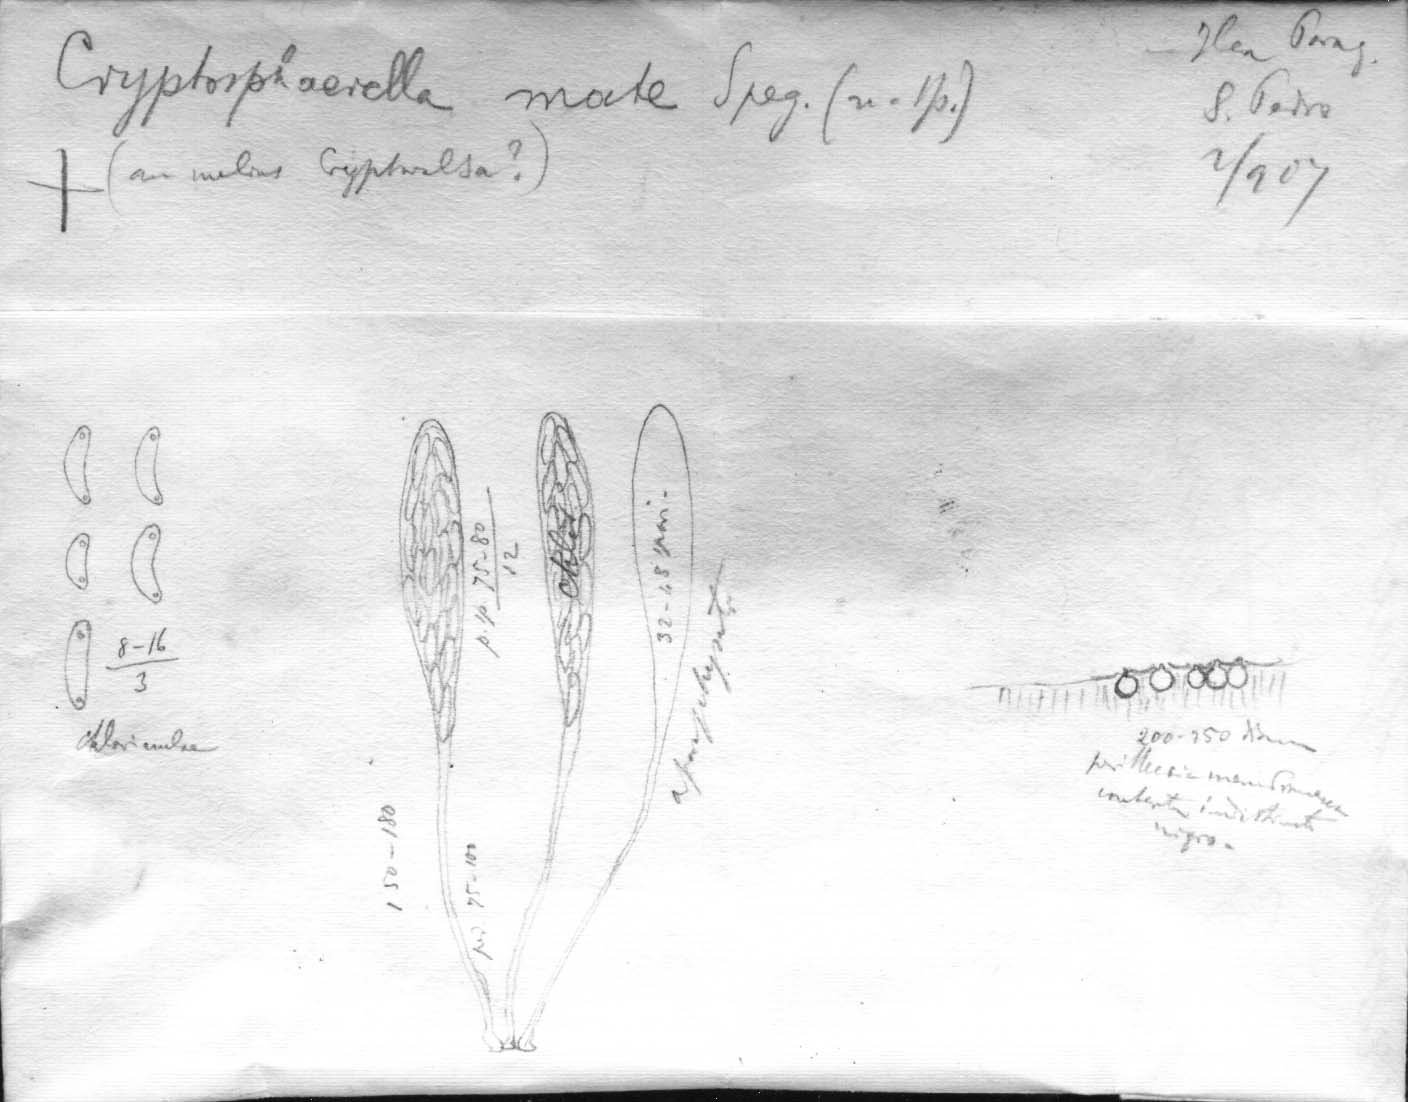 Cryptosphaerella mate Speg. (n. sp.)
(an melius Cryptovalsa?)
Ilex Parag.
S. Pedro
2/907
8-16
3
chlorinulae
p. sp. 75-80
12
chlor
32-48 spori.
aparaphysati
150-180
ped. 75-100
200-250 diam
perithecia membranacea
contextu indistincto
nigro.